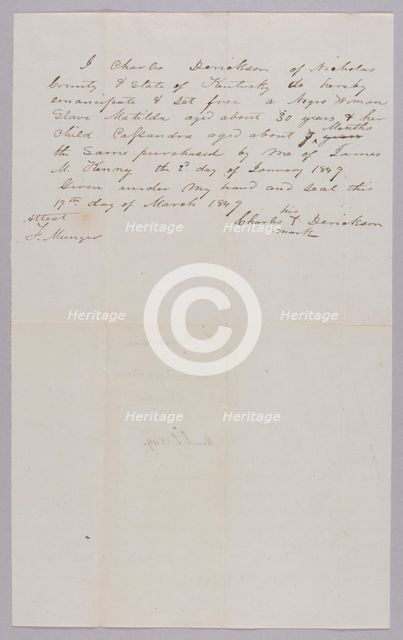 I Charles Derickson of Nicholas
County & State of Kentucky do hereby
emancipate & set free a Negro Woman
Slave Matilda aged about 30 years & her
Child Cassandra aged about 7 Months
th Same purchased by me of James
M. Kenny th 2d day of January 1849
Given under my hand and seal this
19th day of March 1849
Attest
his
Charles T Derickson
mark
F. Munger
Heritage Heritage
Heritage Heritage
C
Heritage Heritage